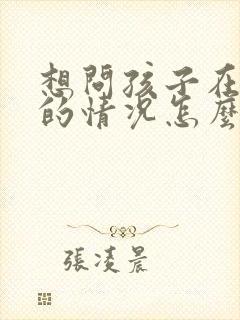 想問孩子在
的情況怎麼
張凌晨